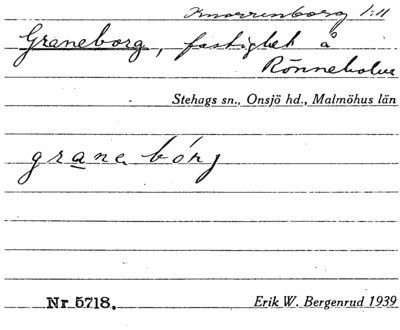 Knorrenborg 1:11
Graneborg, fastighet å
Rönneholm
Stehags sn., Onsjö hd., Malmöhus län
grane bórj
Nr 5718.
Erik W. Bergenrud 1939